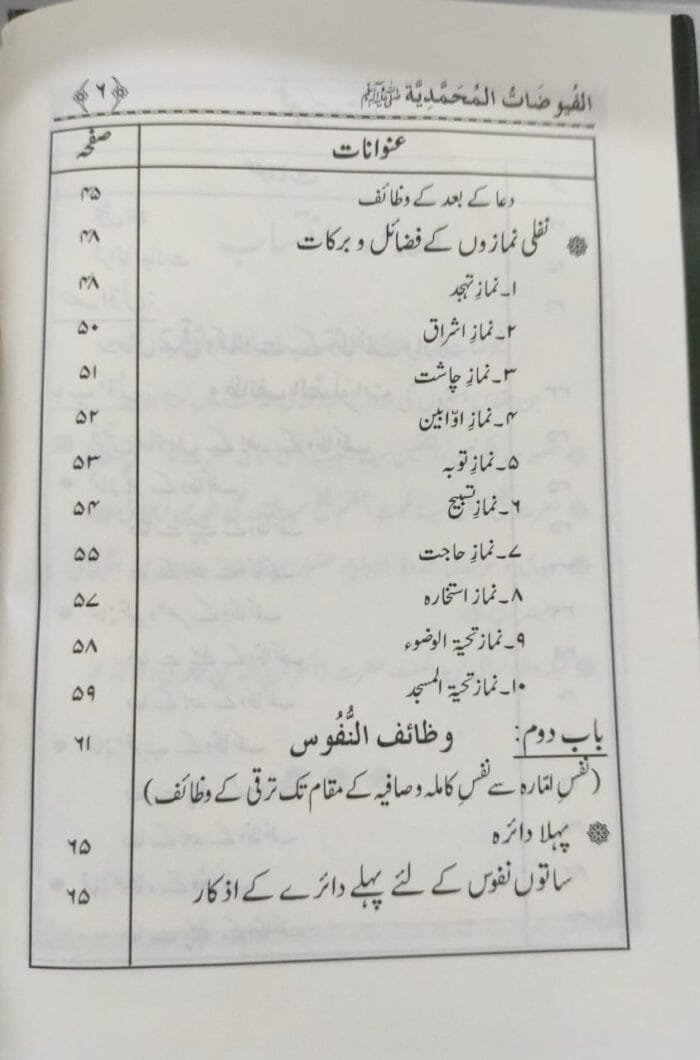 الفیوضَاتُ المُحَمَّدِیَّة ﷺ ﴿۶﴾
عنوانات صفحہ
دعا کے بعد کے وظائف ۴۵
نفلی نمازوں کے فضائل و برکات ۴۸
۱۔ نمازِ تہجد ۴۸
۲۔ نمازِ اشراق ۵۰
۳۔ نمازِ چاشت ۵۱
۴۔ نمازِ اوّابین ۵۲
۵۔ نمازِ توبہ ۵۳
۶۔ نمازِ تسبیح ۵۴
۷۔ نمازِ حاجت ۵۵
۸۔ نمازِ استخارہ ۵۷
۹۔ نماز تحیۃ الوضوء ۵۸
۱۰۔ نماز تحیۃ المسجد ۵۹
باب دوم: وظائف النُّفُوس ۶۱
(نفسِ امّارہ سے نفسِ کاملہ و صافیہ کے مقام تک ترقی کے وظائف)
پہلا دائرہ ۶۵
ساتوں نفوس کے لئے پہلے دائرے کے اذکار ۶۵